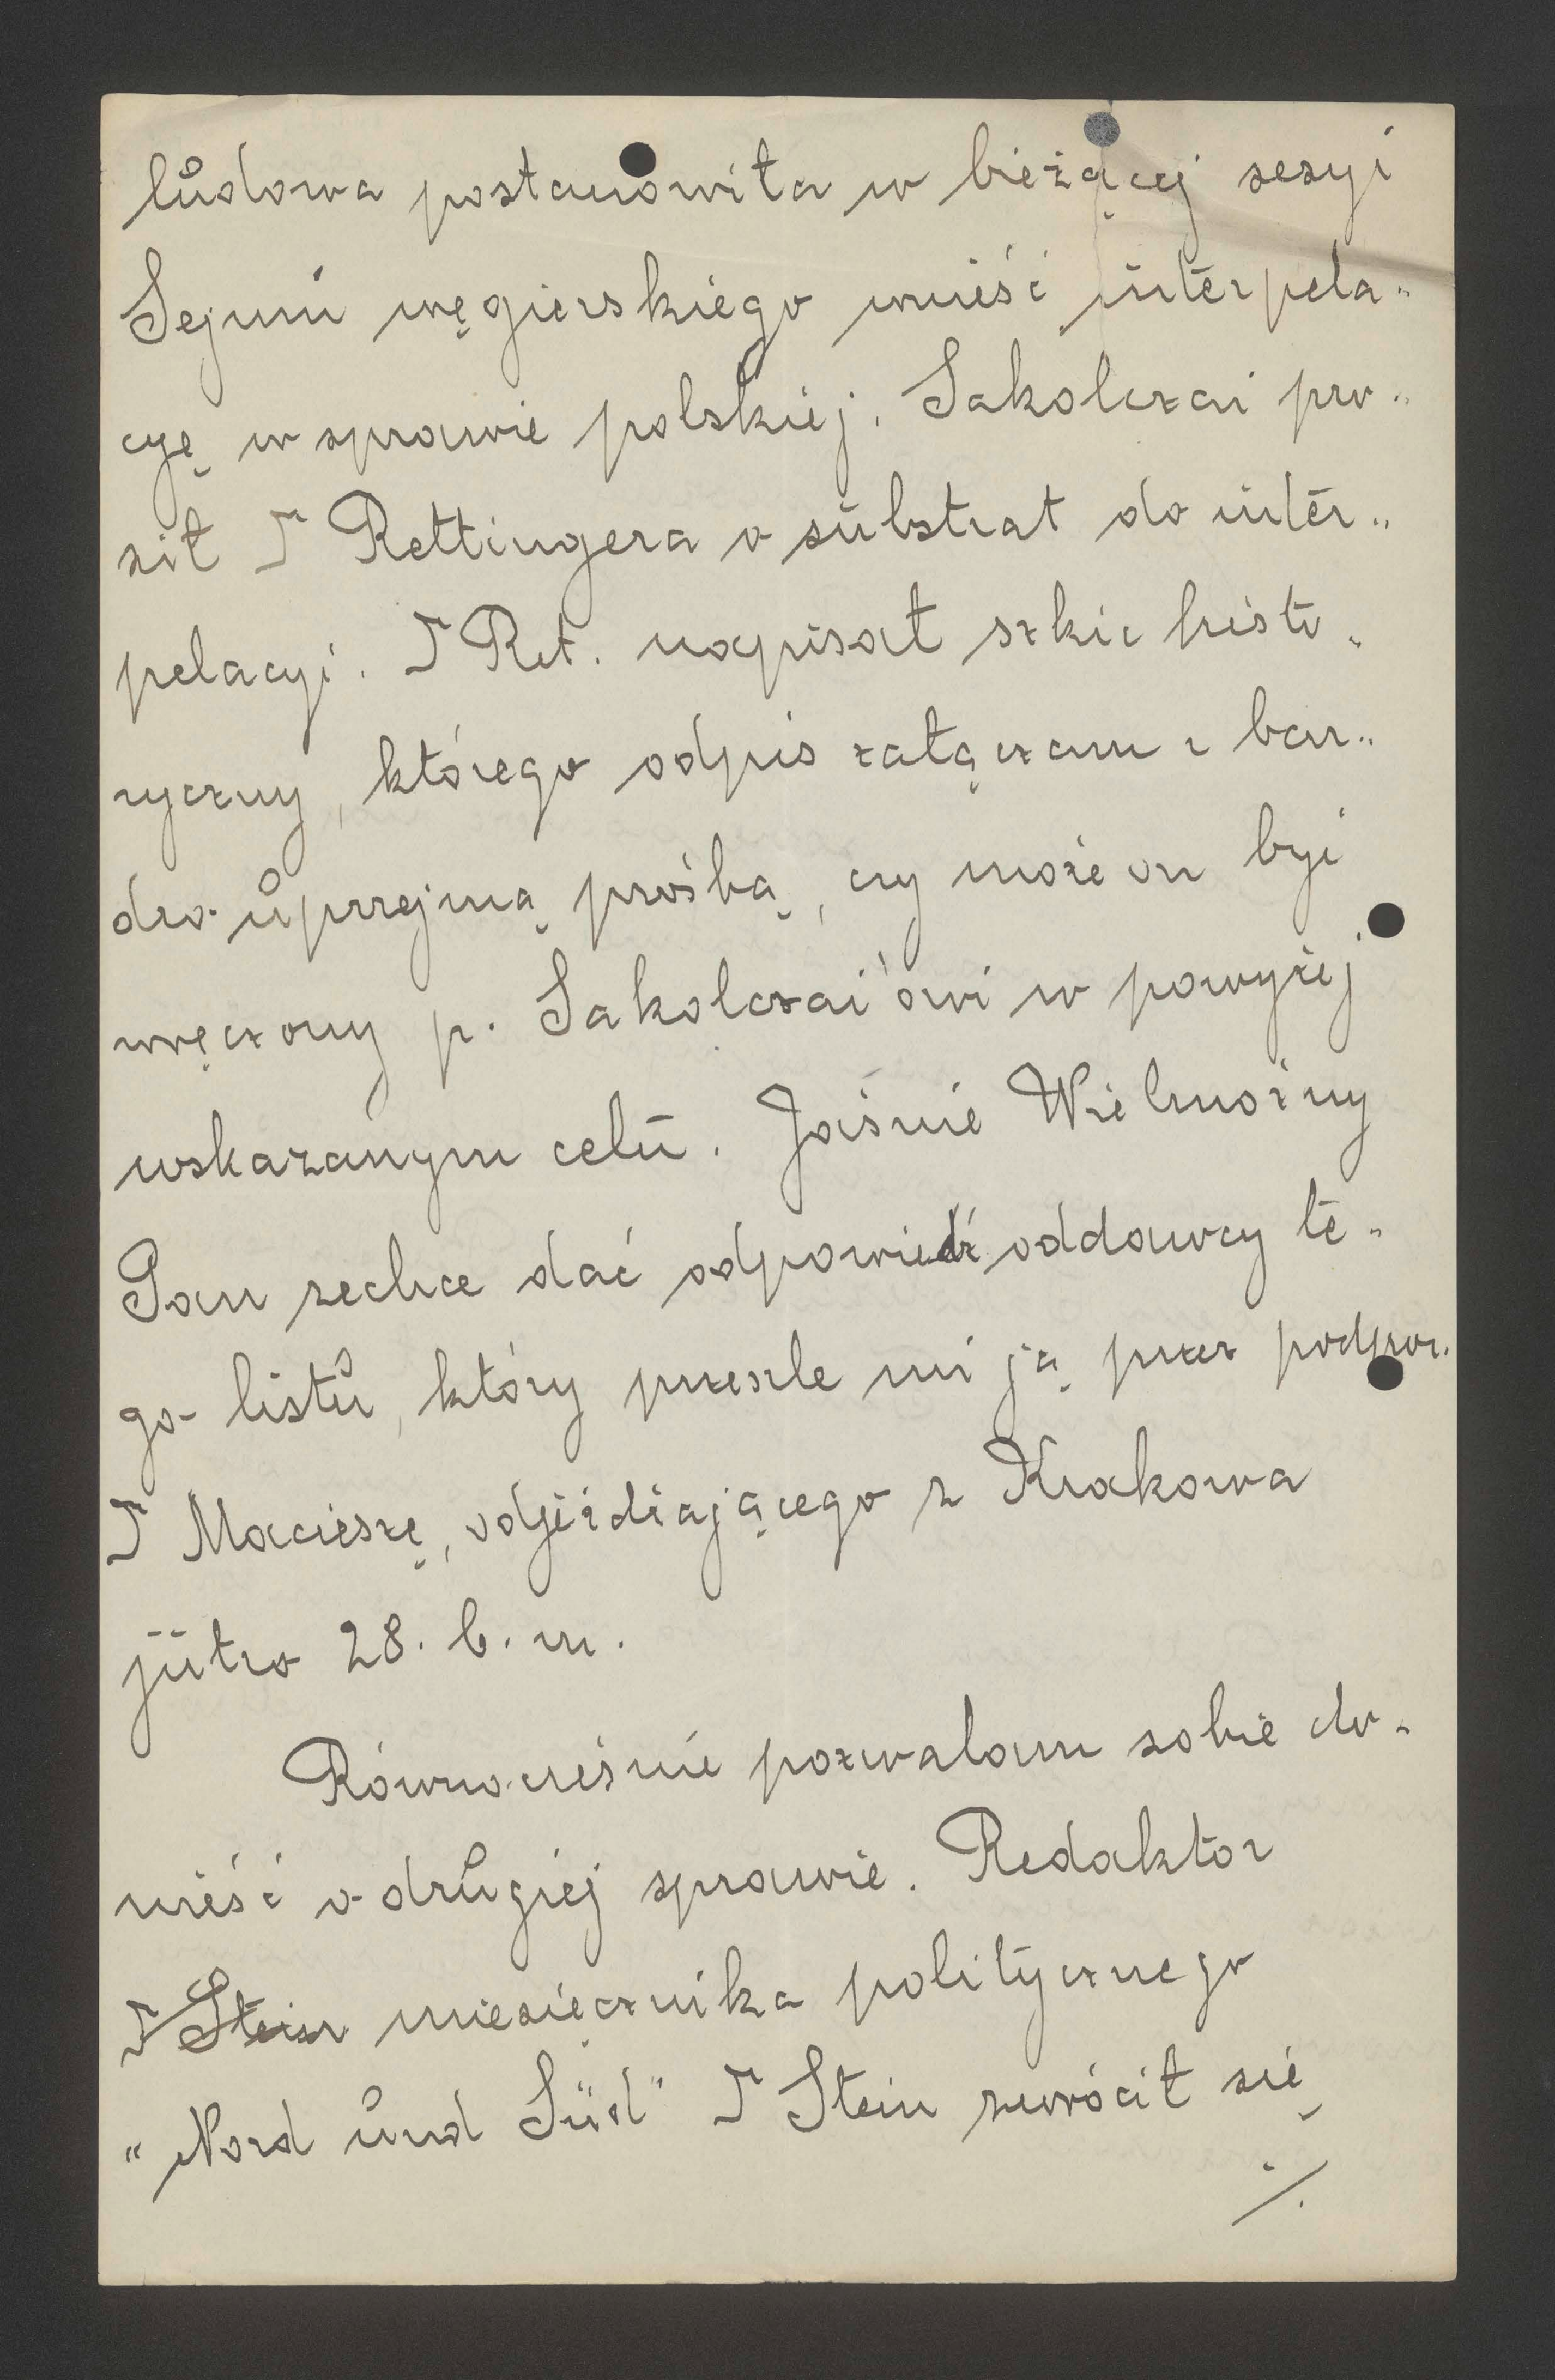 ludowa postanowiła w bieżącej sesyi
Sejmu węgierskiego wnieść interpela-
cyę w sprawie polskiej. Sakolczai pro-
sił Rettingera o substrat do inter-
pelacyi. Ret. napisał szkic histo-
ryczny, którego odpis załączam z bar-
dzo uprzejmą prośbą, czy może on być
wręczony p. Sakolczai'owi w powyżej
wskazanym celu. Jaśnie Wielmożny
Pan zechce dać odpowiedź oddawcy te-
go listu, który prześle mi ją przez podpor.
Macieszę, odjeżdżającego z Krakowa
jutro 28. b. m.
Równocześnie pozwalam sobie do-
nieść o drugiej sprawie. Redaktor
Stein miesięcznika politycznego
"Nord und Süd" Stein zwrócił się
./.